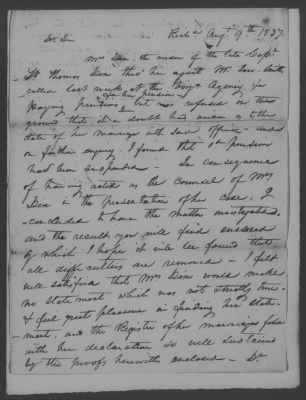 Richd Augt 9th 1837.
Dr Sir
Mrs Dix the widow of the late Capt.
Thomas Dix thro' her agent Mr
called last week at the Agency for
paying pensions for her pension but was refused on the
ground that a doubt had arisen as to the
date of her marriage with said officer - and
on further enquiry. I found that sd pension
had been suspended - In consequence
of having acted as the council of Mrs
Dix in the presentation of her case, I
concluded to have the matter investigated.
and the result you will find enclosed
by which I hope it will be found that
all difficulties are removed - I felt
well satisfied that Mrs Dix would make
no statement which was not strictly true -
& feel great pleasure in finding her state-
ment, and the Register of her marriage filed
with her declaration so well sustained
by the proofs herewith enclosed -